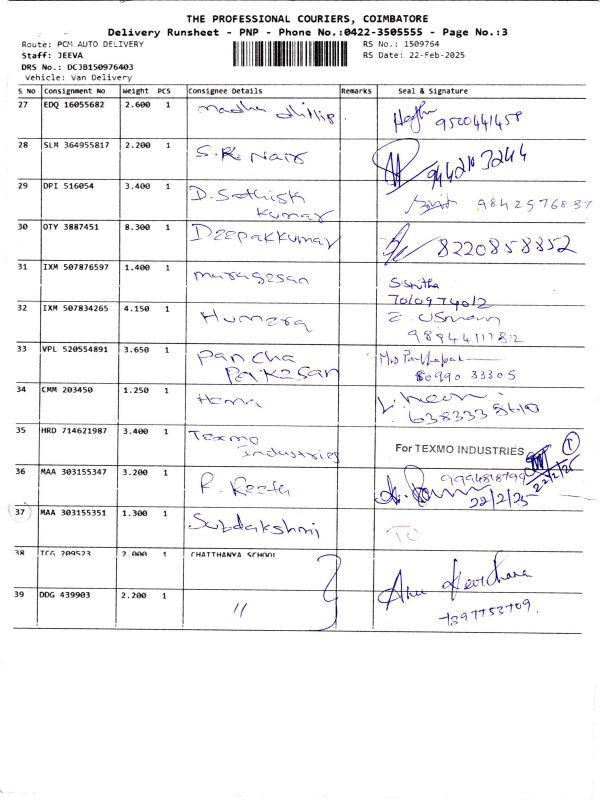 THE PROFESSIONAL COURIERS, COIMBATORE
Delivery Runsheet - PNP - Phone No.:0422-3505555 - Page No.:3
Route: PCM AUTO DELIVERY
RS No.: 1509764
Staff: JEEVA
RS Date: 22-Feb-2025
DRS No.: DCJB150976403
Vehicle: Van Delivery
S No Consignment No Weight PCS Consignee Details Remarks Seal & Signature
27 EDQ 16055682 2.600 1 Madhu
9500441458
28 SLM 364955817 2.200 1 S.R. Nair
9442103244
29 DPI 516054 3.400 1 D. Sathish
Kumar
9842576837
30 OTY 3887451 8.300 1 Deepakkumar 8220858852
31 IXM 507876597 1.400 1 murugesan
7010974012
32 IXM 507834265 4.150 1 Humera
9894411132
33 VPL 520554891 3.650 1 Pancha
80990 33305
34 CMM 203450 1.250 1 Hema
35 HRD 714621987 3.400 1 Texmo
Industries
For TEXMO INDUSTRIES
22/2/25
36 MAA 303155347 3.200 1 P. Keeta
22/2/25
37 MAA 303155351 1.300 1
38 TCG 209523 2.000 1 CHATTHANYA SCHOOL
39 DDG 439903 2.200 1 "
7397753709.